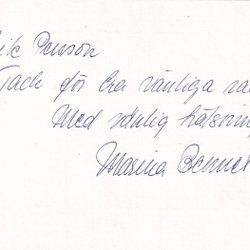 ik Persson
Tack för bra vänliga ra
Med vänlig hälsning
Marina Bennet